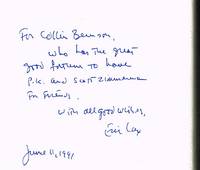 For Collin Bennison,
who has the great
good fortune to have
P.K. and Scott Zimmerman
for friends.
with all good wishes,
Eric Lax
June 11, 1991